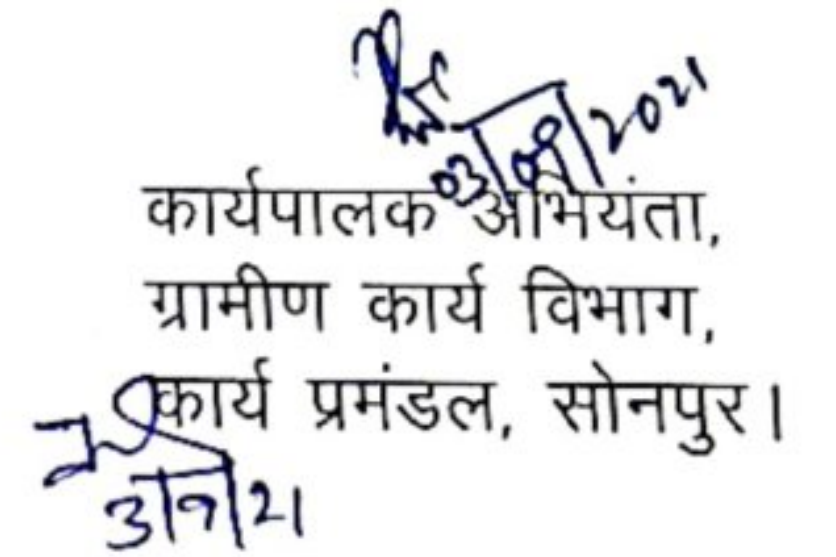 03/09/2021
कार्यपालक अभियंता,
ग्रामीण कार्य विभाग,
कार्य प्रमंडल, सोनपुर।
3/9/21